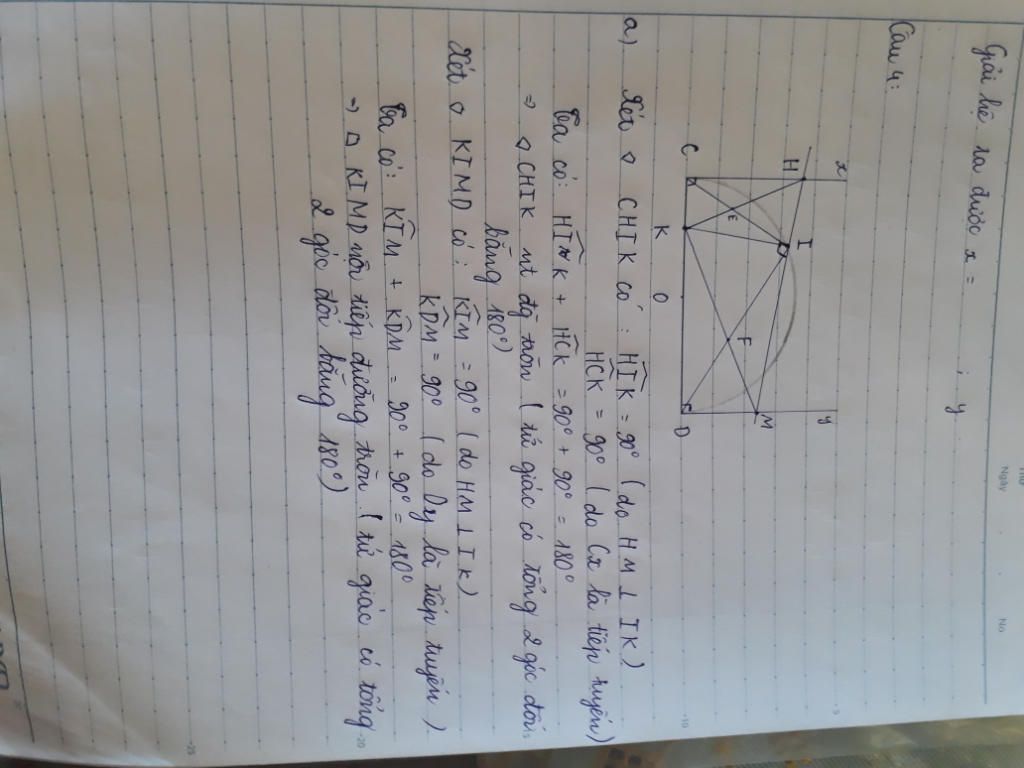 Thứ
Ngày
No
Giải hệ ra được x = ; y
Câu 4:
x
y
H
I
M
E
F
C
K
O
D
a) Xét ◇ CHIK có : HIK = 90° (do HM ⊥ IK)
HCK = 90° (do Cx là tiếp tuyến)
Ta có: HIK + HCK = 90° + 90° = 180°
⇒ ◇ CHIK nt đg tròn (tứ giác có tổng 2 góc đối
bằng 180°)
Xét ◇ KIMD có : KIM = 90° (do HM ⊥ IK)
KDM = 90° (do Dy là tiếp tuyến)
Ta có: KIM + KDM = 90° + 90° = 180°
⇒ ◇ KIMD nội tiếp đường tròn (tứ giác có tổng
2 góc đối bằng 180°)
5
10
20
25